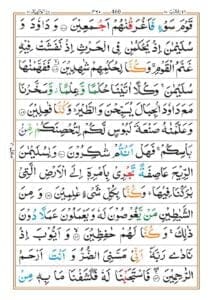 460
قَوْمَ سَوْءٍ فَاَغْرَقْنٰهُمْ اَجْمَعِيْنَ ۝ وَ دَاوٗدَ وَ
سُلَيْمٰنَ اِذْ يَحْكُمٰنِ فِي الْحَرْثِ اِذْ نَفَشَتْ فِيْهِ
غَنَمُ الْقَوْمِ ۚ وَكُنَّا لِحُكْمِهِمْ شٰهِدِيْنَ ۝ فَفَهَّمْنٰهَا
سُلَيْمٰنَ ۚ وَكُلًّا اٰتَيْنَا حُكْمًا وَّعِلْمًا ۫ وَّسَخَّرْنَا
مَعَ دَاوٗدَ الْجِبَالَ يُسَبِّحْنَ وَالطَّيْرَ ؕ وَكُنَّا فٰعِلِيْنَ ۝
وَعَلَّمْنٰهُ صَنْعَةَ لَبُوْسٍ لَّكُمْ لِتُحْصِنَكُمْ مِّنْۢ
بَاْسِكُمْ ۚ فَهَلْ اَنْتُمْ شٰكِرُوْنَ ۝ وَلِسُلَيْمٰنَ
الرِّيْحَ عَاصِفَةً تَجْرِيْ بِاَمْرِهٖٓ اِلَى الْاَرْضِ الَّتِيْ
بٰرَكْنَا فِيْهَا ؕ وَكُنَّا بِكُلِّ شَيْءٍ عٰلِمِيْنَ ۝ وَمِنَ
الشَّيٰطِيْنِ مَنْ يَّغُوْصُوْنَ لَهٗ وَيَعْمَلُوْنَ عَمَلًا دُوْنَ
ذٰلِكَ ۚ وَكُنَّا لَهُمْ حٰفِظِيْنَ ۝ وَ اَيُّوْبَ اِذْ
نَادٰى رَبَّهٗٓ اَنِّيْ مَسَّنِيَ الضُّرُّ وَ اَنْتَ اَرْحَمُ
الرّٰحِمِيْنَ ۝ فَاسْتَجَبْنَا لَهٗ فَكَشَفْنَا مَا بِهٖ مِنْ